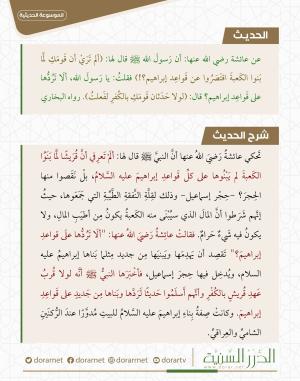 الموسوعة الحديثية
الحديث
عن عائشة رضي الله عنها: أن رسول الله ﷺ قال لها: (ألم تري أن قومك لمَّا
بنوا الكعبة اقتصروا عن قواعد إبراهيم؟!) فقلت: يا رسول الله، ألا تردُّها
على قواعد إبراهيم؟ قال: (لولا حدثان قومك بالكفر لفعلت). رواه البخاري
شرح الحديث
تحكي عائشة رضي الله عنها أن النبي ﷺ قال لها: ألم تعرفي أن قريشًا لمَّا بنوا
الكعبة لم يبنوها على كل قواعد إبراهيم عليه السلام، بل نقصوا منها
الحِجر؟ -حِجر إسماعيل- وذلك لقلة النفقة الطيبة التي جمعوها، حيث
إنهم شرطوا أن المال الذي سيُبنى منه الكعبة يكون من أطيب المال، ولا
يكون فيه شيء حرام. فقالت عائشة رضي الله عنها: "ألا تردُّها على قواعد
إبراهيم؟" تقصد أن يهدمها ويبنيها من جديد مثلما بناها إبراهيم عليه
السلام، ويُدخل فيها حجر إسماعيل، فأخبرها النبي ﷺ أنه لولا قُرب
عهد قريش بالكفر وأنهم أسلموا حديثًا لردَّها وبناها من جديد على قواعد
إبراهيم. وكانت صفة بناء إبراهيم عليه السلام للبيت مدورًا عند الركنين
الشامي والعراقي.
الدرر السنية
www.dorar.net
dorarnet dorarnet dorarnet dorartv